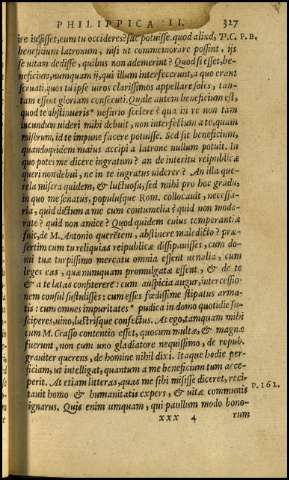 PHILIPPICA II. 327
ire iussisset, eum tu occideres? sac potuisse. quod aliud, P. C. P. B,
beneficium latronum, nisi ut commemorare possint, ijs
se uitam dedisse, quibus non ademerint? Quod si esset, be-
neficium, numquam ij, qui illum interfecerunt, a quo erant
seruati, quos tu ipse uiros clarissimos appellare soles, tan-
tam essent gloriam consecuti. Quale autem beneficium est,
quod te abstinueris * nefario scelere? qua in re non tam
iucundum uideri mihi debuit, non interfectum a te, quam
miserum, id te impune facere potuisse. Sed sit beneficium,
quandoquidem maius accipi a latrone nullum potuit. In
quo potes me dicere ingratum? an de interitu reipublicæ
queri non debui, ne in te ingratus uiderer? An illa que-
rela misera quidem, & luctuosa, sed mihi pro hoc gradu,
in quo me senatus, populusque Rom. collocauit, necessa-
ria, quid dictum a me cum contumelia? quid non mode-
rate? quid non amice? Quod quidem cuius temperantiæ
fuit, de M. Antonio querétem, abstinere maledicto? præ-
sertim cum tu reliquias reipublicæ dissipauisses, cum do-
mi tuæ turpissimo mercatu omnia essent uenalia, cum
leges eas, quæ numquam promulgatæ essent, & de te
& a te latas confiterere: cum auspicia augur, intercessio-
nem consul sustulisses: cum esses fœdissime stipatus arma-
tis: cum omnes impuritates * pudica in domo quotidie su-
sciperes, uino, lustrisque confectus. At ego, tamquam mihi
cum M. Crasso contentio esset, quocum multæ, & magnæ
fuerunt, non cum uno gladiatore nequissimo, de repub.
grauiter querens, de homine nihil dixi. Itaque hodie per-
ficiam, ut intelligat, quantum a me beneficium tum acce-
perit. At etiam litteras, quas me sibi misisse diceret, reci-
tauit homo & humanitatis expers, & uitæ communis P. 162.
ignarus. Quis enim umquam, qui paullum modo bono-
xxx 4 rum